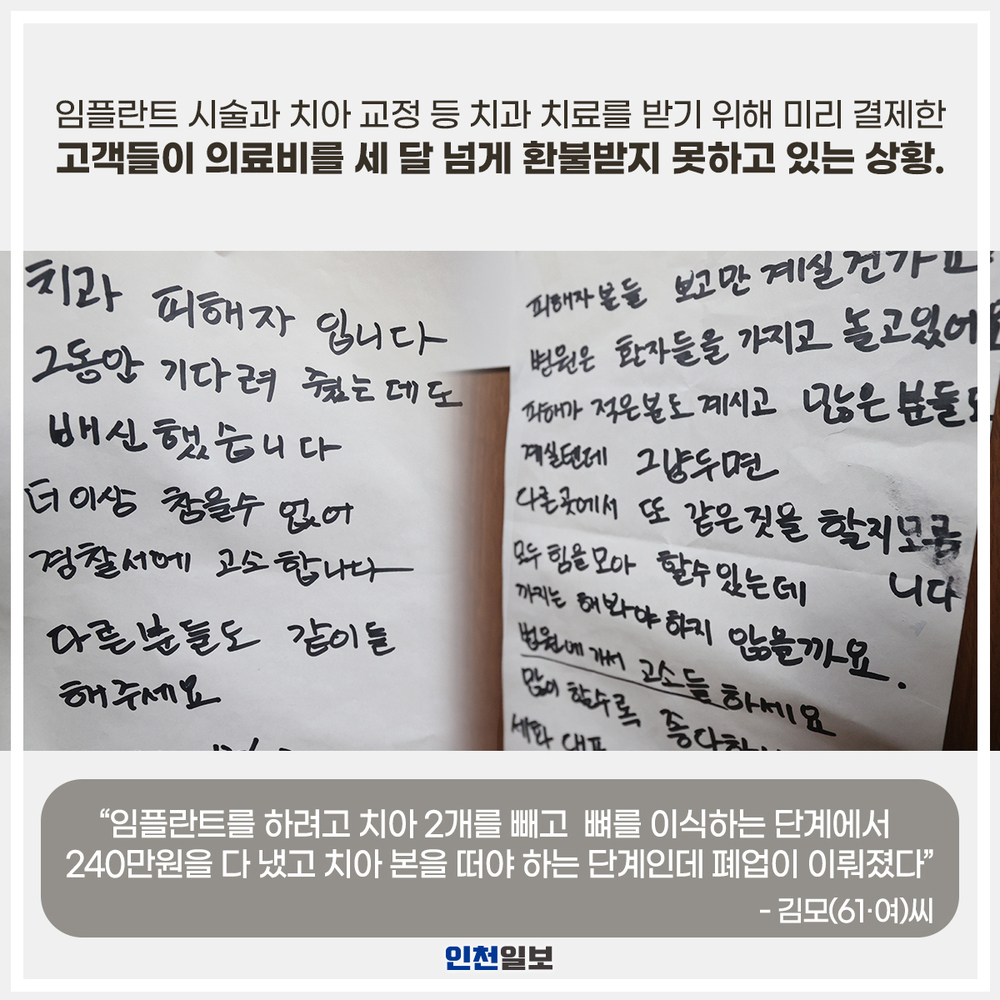 임플란트 시술과 치아 교정 등 치과 치료를 받기 위해 미리 결제한
고객들이 의료비를 세 달 넘게 환불받지 못하고 있는 상황.
치과 피해자 입니다
그동안 기다려 줬는데도
배신했습니다
더이상 참을수 없어
경찰서에 고소합니다
다른분들도 같이들
해주세요
피해자분들 보고만 계실건가요
병원은 환자들을 가지고 놀고있어요
피해가 적은분도 계시고 많은분들도
계실텐데 그냥두면
다른곳에서 또 같은짓을 할지모릅
니다
모두 힘을모아 할수있는데
까지는 해봐야 하지 않을까요.
법원에가서 고소들 하세요
많이 할수록
“임플란트를 하려고 치아 2개를 빼고 뼈를 이식하는 단계에서
240만원을 다 냈고 치아 본을 떠야 하는 단계인데 폐업이 이뤄졌다”
- 김모(61·여)씨
인천일보